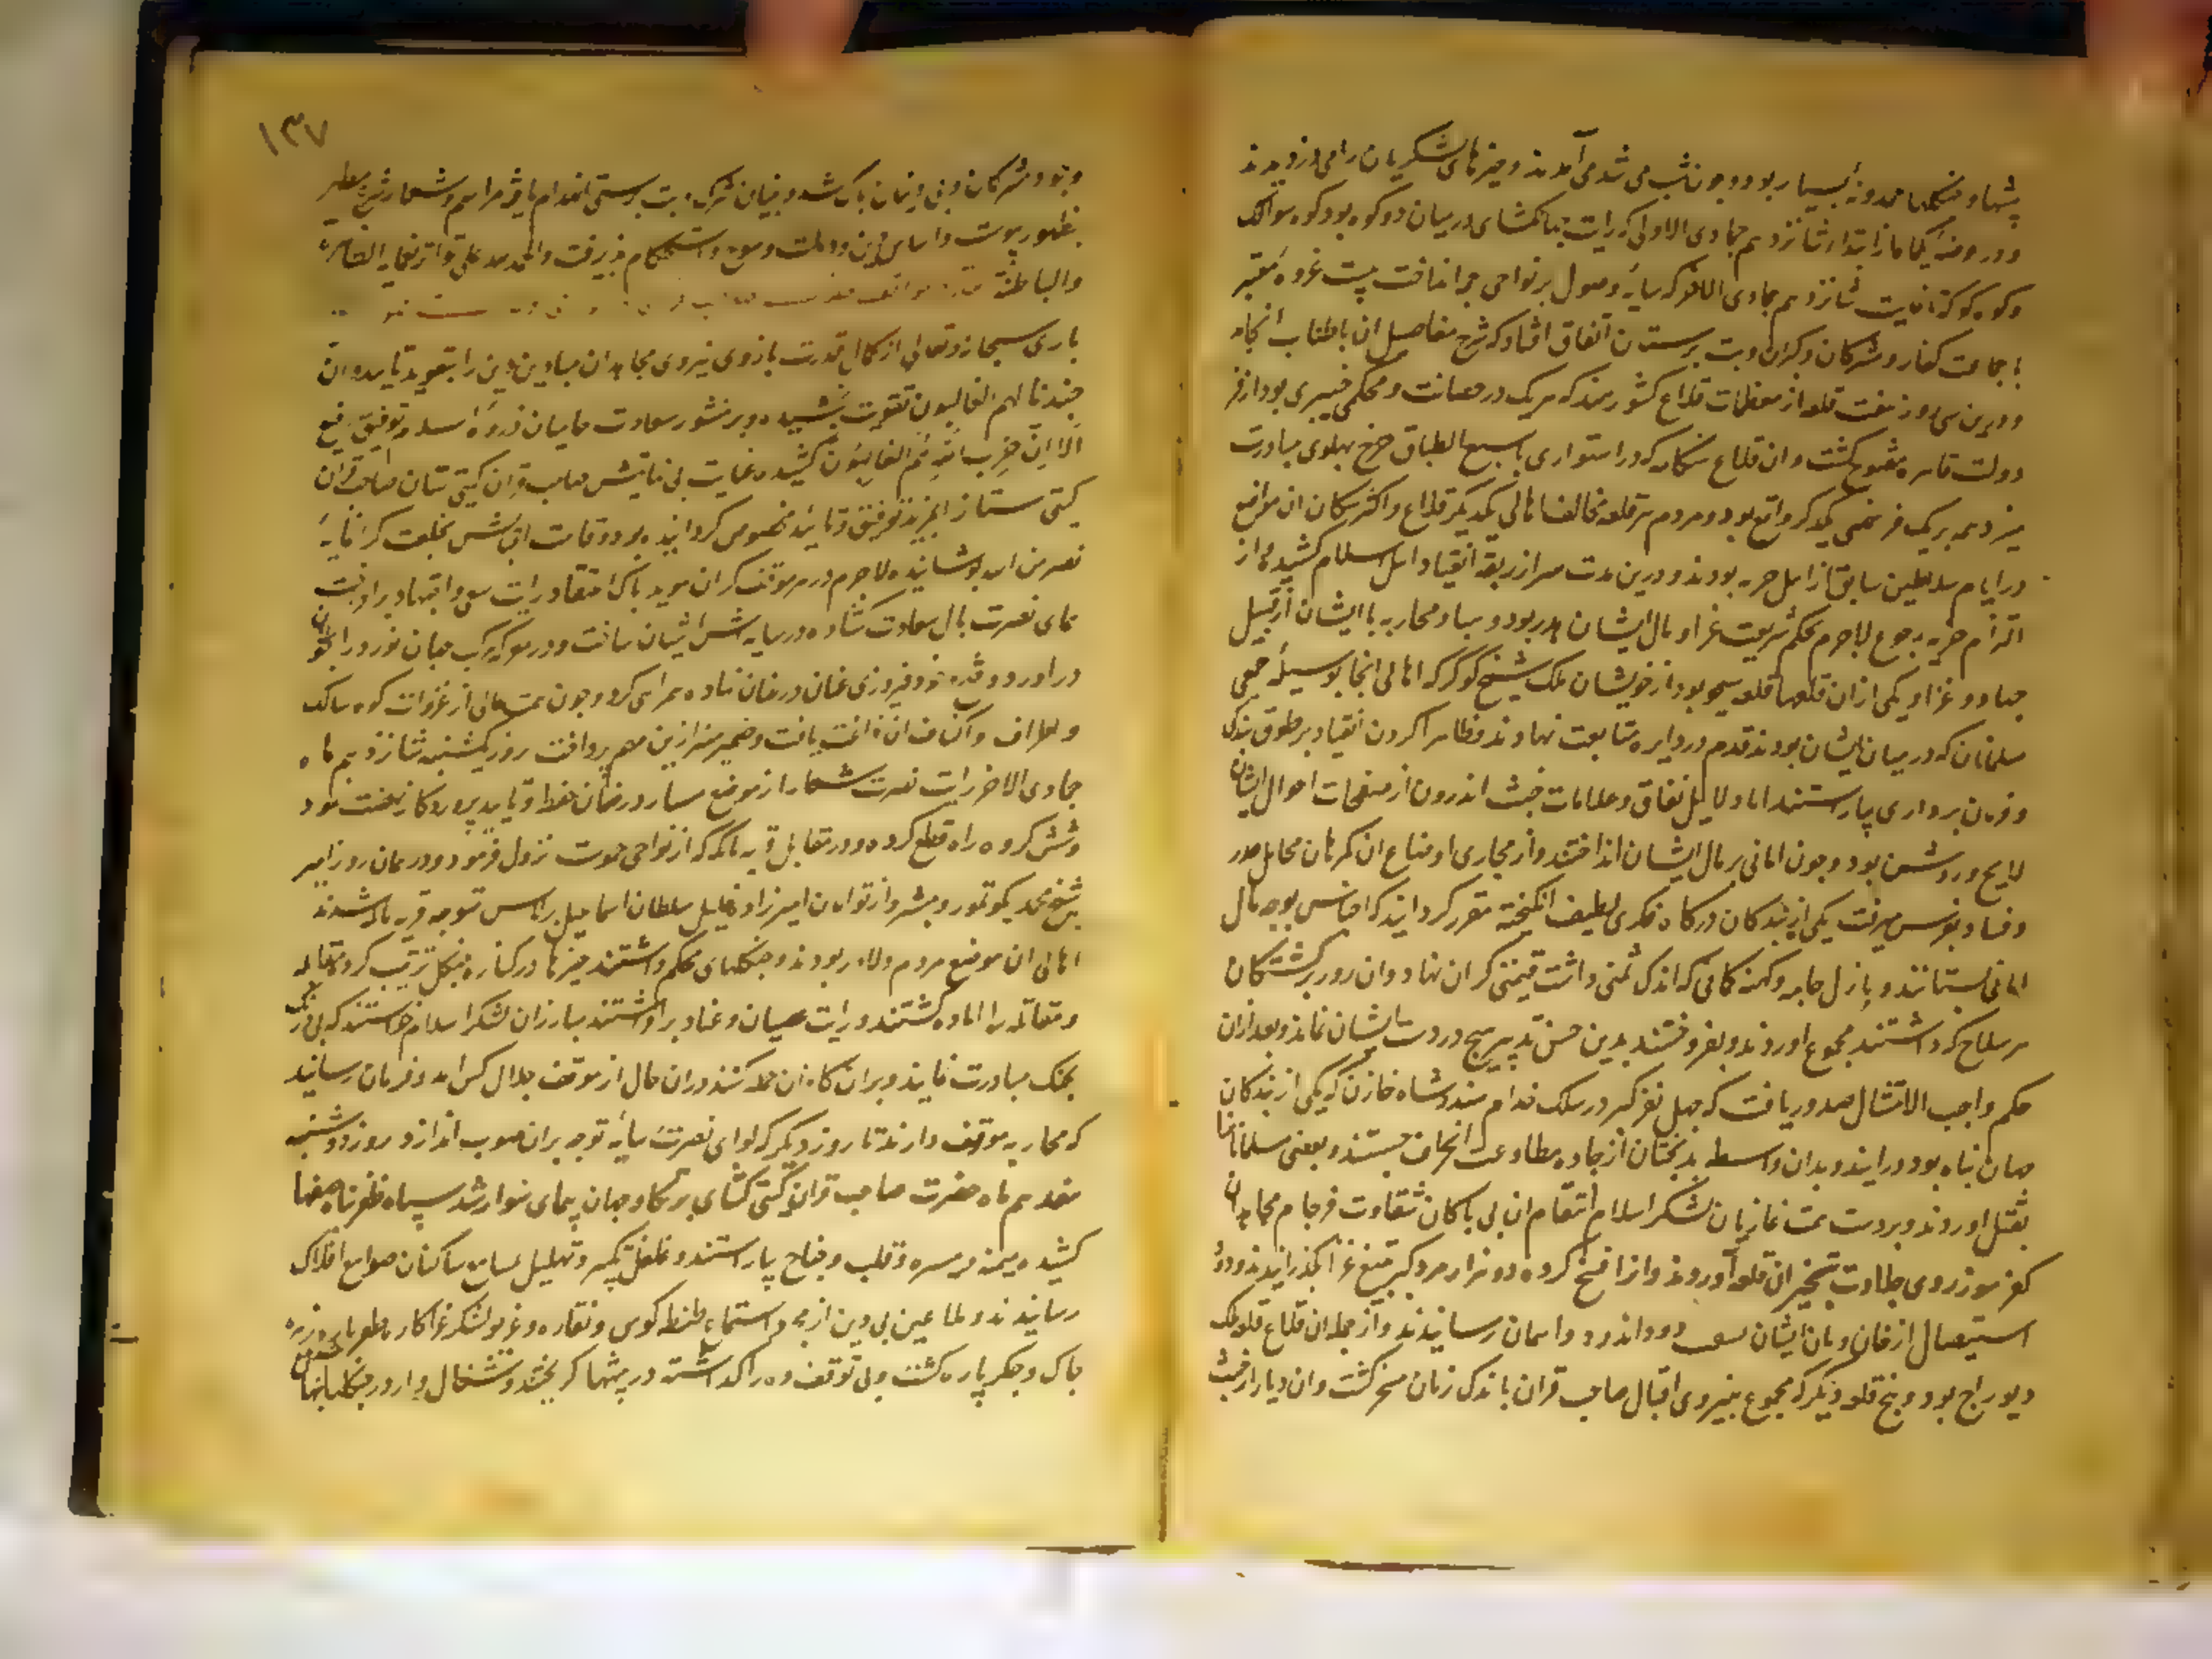 پشها و جنگلها محدود بسیار بود و چون شب می شد می آمدند و چیزهای لشکریان را می دزدیدند
ودر ومنه یکماه از ابتدا شانزدهم جمادی الاولی که رایت جهانگشای درمیان دو کوه بود کوه سوالک
وکوه کوکه تا غایت شانزدهم جمادی الاخر که سایه وصول بر نواحی جمو انداخت بیست غزوه معتبر
با جماعت کفار و مشرکان و کبران و بت پرستان اتفاق افتاد که شرح مفاصیل آن باطناب انجامد
و درین سی روز هفت قلعه از معظمات قلاع کشور هند که هریک در حصانت و محکمی خیبری بود از فر
دولت قاهره مفتوح کشت و آن قلاع سنکاه که در استواری با سبع الطباق چرخ پهلوی مبادرت
میزد همه بریک فرسخی یکدیکر واقع بود و مردم هر قلعه مخالف اهالی یکدیکر قلاع و اکثر سکان آن مواضع
در ایام سلاطین سابق از اهل جزیه بودند و درین مدت سر از ربقه انقیاد اهل اسلام کشیده و از
التزام جزیه رجوع لاجرم بحکم شریعت غرا و مال ایشان هدر بود و جهاد و محاربه با ایشان از قبیل
جهاد و غزا و یکی از آن قلعها قلعه شیخو بود از خویشان ملک شیخ کوکر که اهالی انجا بوسیله جمعی
مسلمانان که درمیان ایشان بودند قدم در دایره متابعت نهادند و ظاهرا کردن انقیاد بر طوق بندکی
و فرمان برداری بیاراستند اما دلایل نفاق و علامات خبث اندرون از صفحات احوال ایشان
لایح و روشن بود و چون امانی بر مال ایشان انداختند و از مجاری اوضاع آن کمرهان مخایل غدر
و فساد بتفرس میرفت یکی از بندکان درکاه فکری لطیف انکیخته مقرر کردانید که اجناس بوجه مال
امانی بستانند و بازل جامه و کهنه کمانی که اندک ثمنی داشت قیمتی کران نهاد و ان روز برکشتکان
هر سلاح که داشتند مجموع آوردند و بفروختند بدین حسن تدبیر هیچ در دست ایشان نماند و بعد ازان
حکم واجب الامتثال صدور یافت که چهل نفر کبر در سلک خدام هندو شاه خازن که یکی از بندکان
جهان پناه بود درایند و بدان واسطه بدبختان از جاده مطاوعت انحراف جستند و بعضی مسلمانان را
بقتل آوردند و بر دست همت غازیان لشکر اسلام انتقام آن بی باکان شقاوت فرجام مجاهدان
کفر سوز روی جلادت بتسخیر آن قلعه آوردند و از افتح کرده دو هزار مرد کبر بتیغ غزا بکذرانیدند و دود
استیصال از خان و مان ایشان بسقف دود اندود و آسمان رسانیدند و از جمله آن قلاع قلعه ملک
دیوراج بود و پنج قلعه دیکر که مجموع بنیروی اقبال صاحب قران باندک زمان مسخر کشت و آن دیار از خبث
۱۳۷
وجود مشرکان و بی دینان پاک شد و بنیان شرک و بت پرستی انهدام یافت و مراسم و شعار شرع مطهر
بظهور پیوست و اساس دین و دولت رسوخ و استحکام پذیرفت والحمد لله علی تواتر نعمایه الظاهرة
والباطنة
باری سبحانه و تعالی از کمال قدرت بازوی نیروی مجاهدان میادین دین را بتعویذ تایید و ان
جندنا لهم الغالبون تقویت بخشیده و بر منشور سعادت حامیان ذروه اسلام توفیق رفیع
الا ان حزب الله هم الغالبون کشیده غایت بی نهایتش صاحب قران کیتی ستان صاحب قران
کیتی ستان را بمزید توفیق و تایید مخصوص کردانیده بود و قامت اقبالش بخلعت کرانمایه
نصر من الله پوشانیده لاجرم در هر موقف کران موید پاک اعتقاد رایت سعی و اجتهاد برافراخت
همای نصرت بال سعادت کشاده در سایه اش آشیان ساخت و در هر معرکه مرکب جهان نورد را بجولان
دراورد و قدم ظفر و فیروزی عنان در عنان نهاده همراهی کرد و چون همت عالی از غزوات کوه سالک
و اطراف و اکناف آن فراغت یافت و ضمیر منیر ازین مهم پرداخت روز یکشنبه شانزدهم ماه
جمادی الاخر رایت نصرت شعار از موضع منسار در ضمان حفظ و تایید پروردکار نهضت نمود
وشش کروه راه قطع کرده و در مقابل قریه بالله که از نواحی جموست نزول فرمود و در همان روز امیر
شیخ محمد یکوتمور و مبشر و از تومان امیرزاده خلیل سلطان اسماعیل برلاس متوجه قریه بالله شدند
اهالی ان موضع مردم دلاور بودند و جنکلهای محکم داشتند چیزها در کناره جنکل ترتیب کرده مقاتله
و مقاتله را آماده کشتند و رایت عصیان و عناد برافراشتند مبارزان لشکر اسلام خواستند که بی درنک
بجنک مبادرت نمایند و بران کمراهان حمله کنند دران حال از موقف جلال کس آمد و فرمان رسانید
که محاربه موقوف دارند تا روز دیکر که لوای نصرت سایه توجه بران صوب اندازد روز دوشنبه
هفدهم ماه حضرت صاحب قران کیتی کشای بر تکاور جهان پیمای سوار شد سپاه ظفرپناه صفها
کشیده میمنه و میسره و قلب و جناح بیاراستند و غلغل تکبیر و تهلیل بمسامع ساکنان صوامع افلاک
رسانیدند و ملاعین بی دین از مجرد استماع طنطنه کوس و نقاره و غریو لشکر غزا کار
چاک و جکر پاره کشت و بی توقف ده را کذاشته در بیشها کریختند و شغال وار در جنکلها پنهان شدند